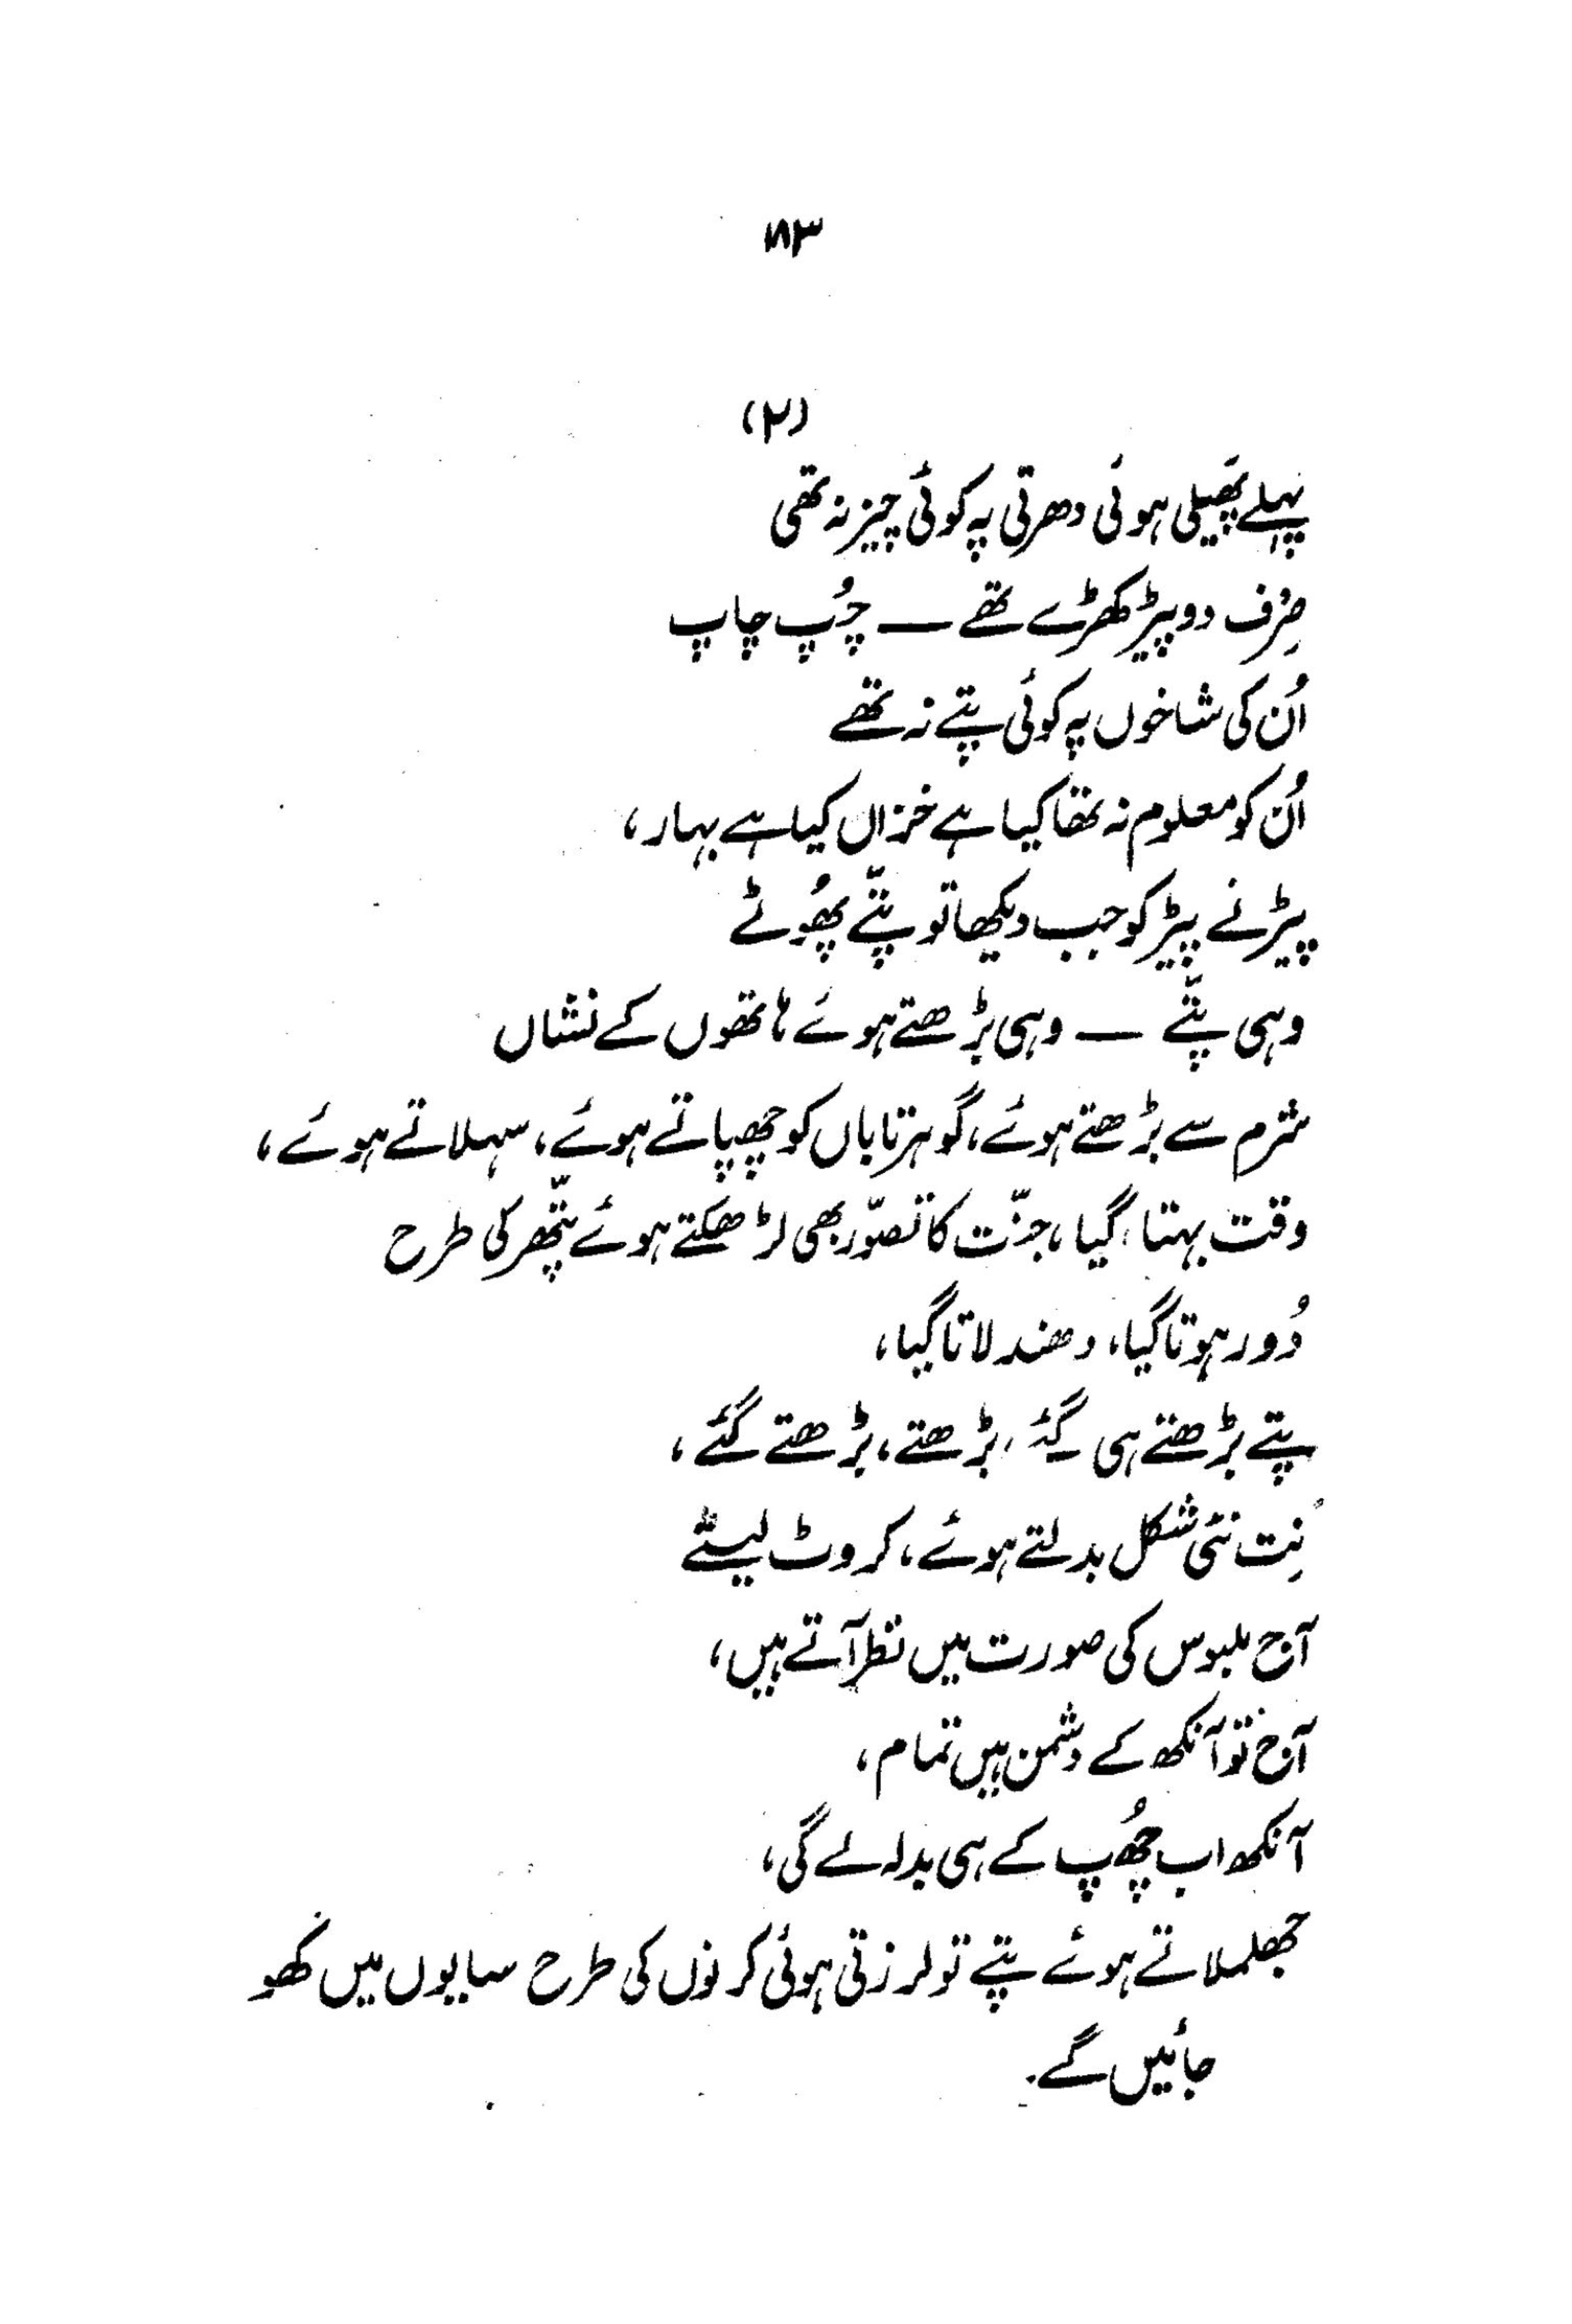 ۱۸۳
(۲)
پہلے پھیلی ہوئی دھرتی پہ کوئی چیز نہ تھی
صِرف دو پیڑ کھڑے تھے — چُپ چاپ
اُن کی شاخوں پہ کوئی پتے نہ تھے
اُن کو معلوم نہ تھا کیا ہے خزاں کیا ہے بہار،
پیڑ نے پیڑ کو جب دیکھا تو پتّے پھُوٹے
وہی پتّے — وہی بڑھتے ہوئے ہاتھوں کے نشاں
شرم سے بڑھتے ہوئے، گوہرِ تاباں کو چھپاتے ہوئے، سہلاتے ہوئے،
وقت بہتا گیا، جنّت کا تصوّر بھی لڑھکتے ہوئے پتّھر کی طرح
دُور ہوتا گیا، دھندلاتا گیا،
پتے بڑھتے ہی گئے، بڑھتے، بڑھتے گئے،
نِت نئی شکل بدلتے ہوئے، کروٹ لیتے
آج ملبوس کی صورت میں نظر آتے ہیں،
آج تو آنکھ کے دشمن ہیں تمام،
آنکھ اب چھُپ کے ہی بدلہ لے گی،
جھلملاتے ہوئے پتے تو لرزتی ہوئی کرنوں کی طرح سایوں میں کھو
جائیں گے.